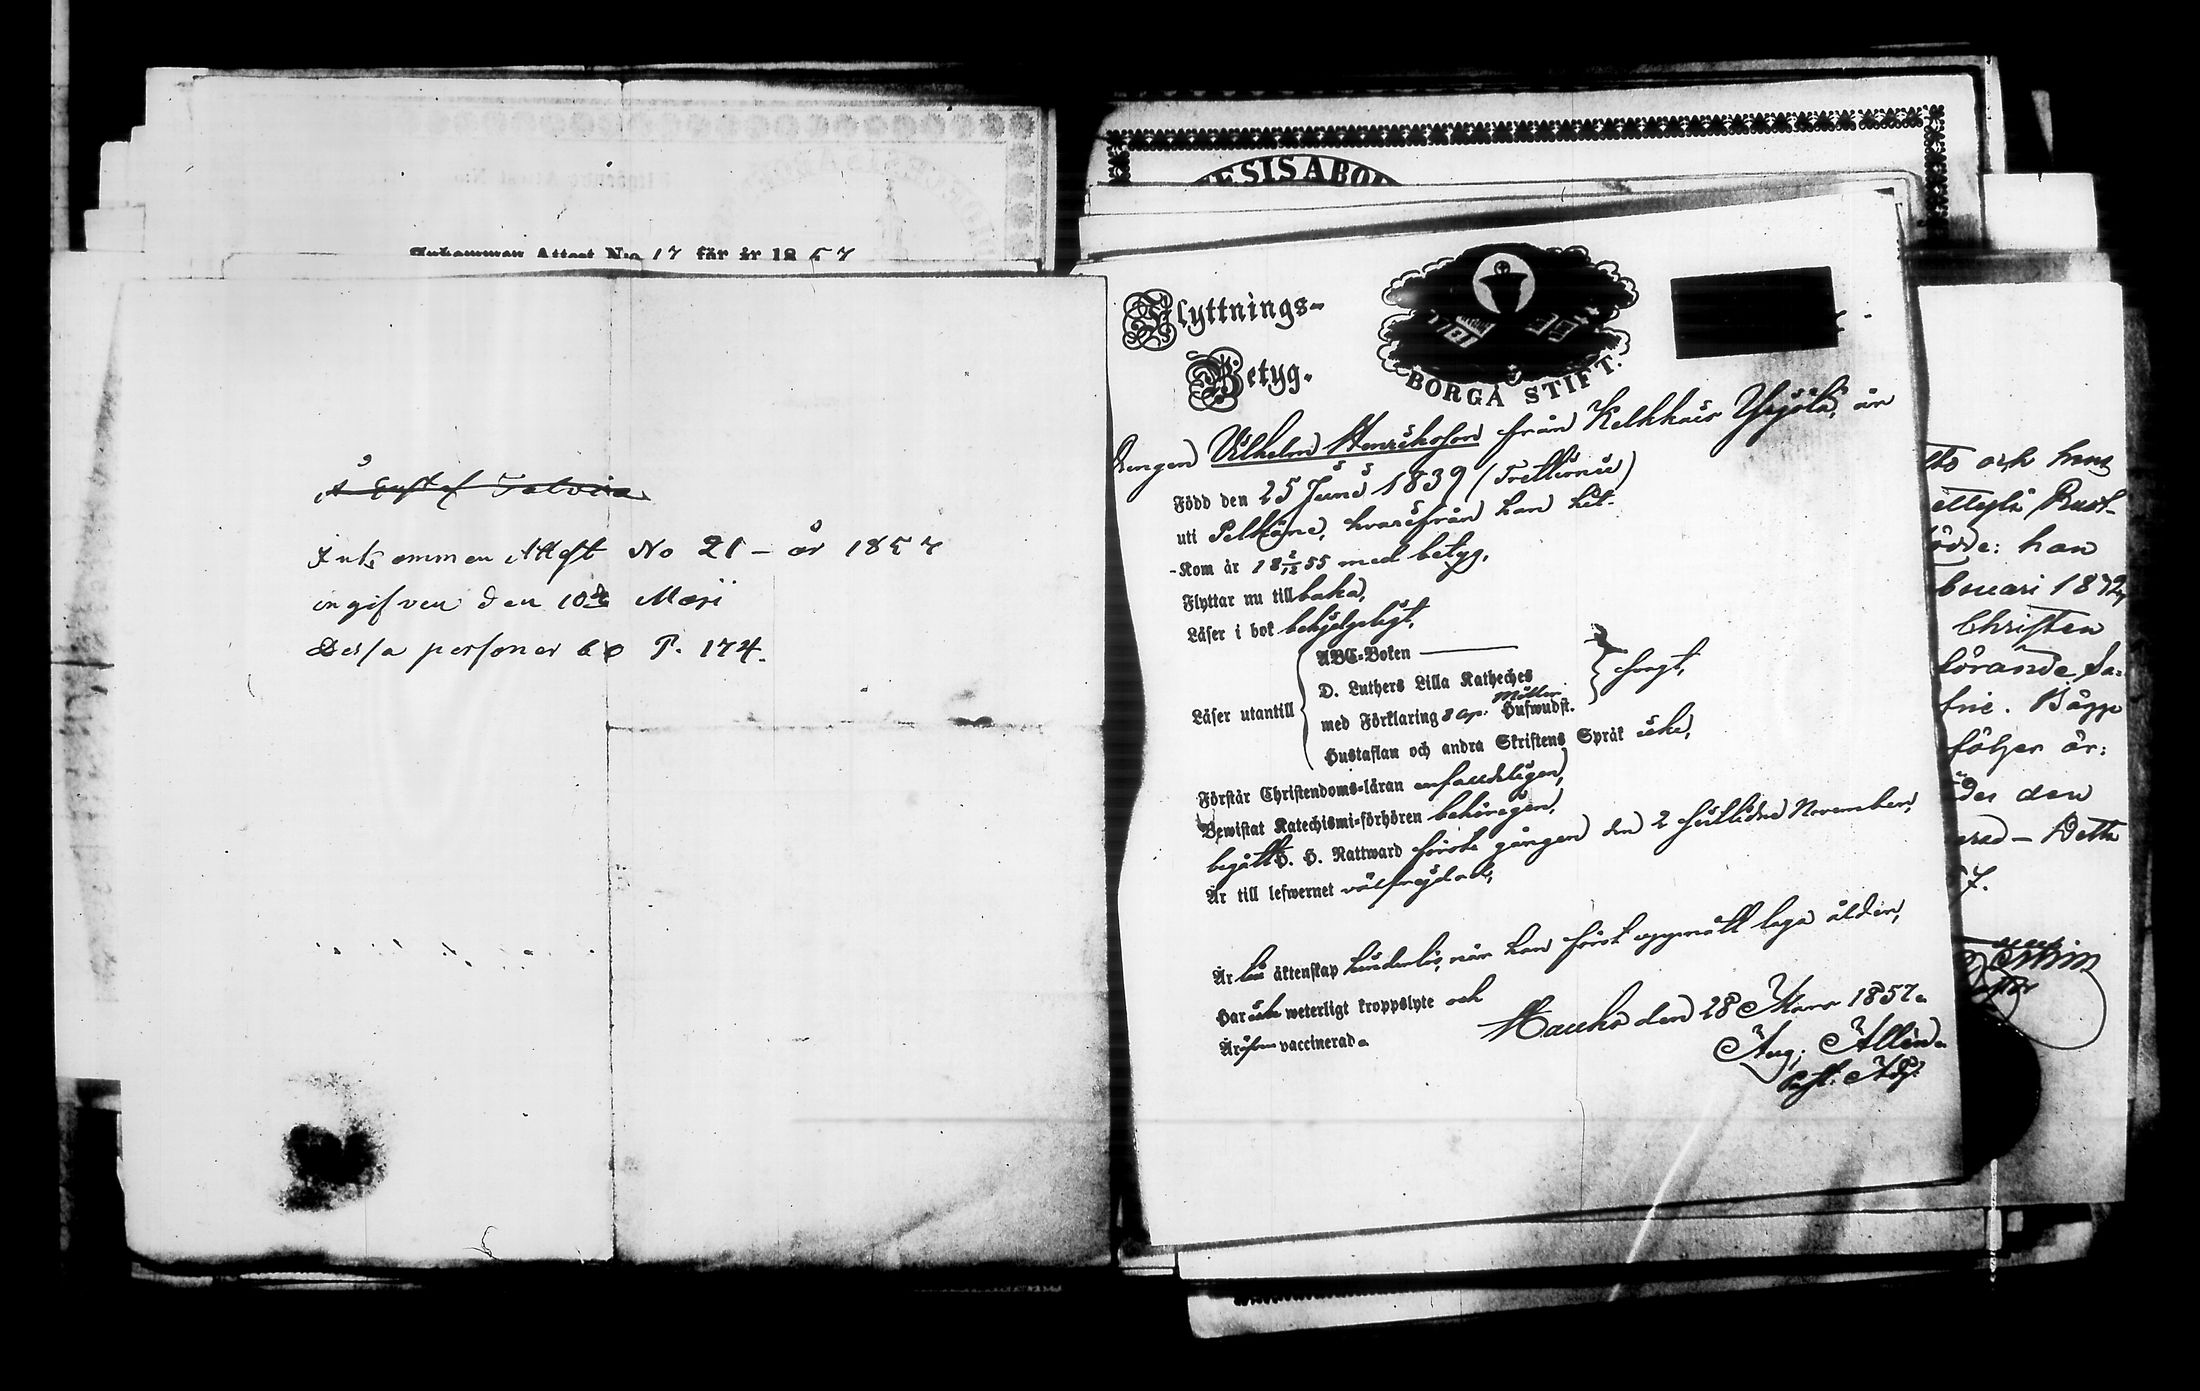 Inkommen Attest No 17 för år 1857
Inkommen Attest No 21 – år 1857
ingifven den 10de Maji
Dessa personer bo P. 174.
ESIS ABO
Flyttnings-
Betyg.
BORGÅ STIFT.
Drengen Vilhelm Henriksson från Kelkkais Yrjölä, är
Född den 25 Juni 1839 (Trettionie)
uti Pelkäne, hvarifrån han hit-
-Kom år 18 2/12 55 med betyg,
Flyttar nu tillbaka,
Läser i bok behjelpeligt,
ABC-Boken ———
D. Luthers Lilla Katheches
med Förklaring 8 cap. Hufwudst.
Läser utantill
svagt,
Hustaflan och andra Skriftens Språk icke,
Förstår Christendoms-läran enfaldeligen,
Bewistat Katechismi-förhören behörigen,
begått H. H. Nattward första gången den 2 sistlidne November,
Är till lefwernet välfrejdad,
Är till äktenskap hinderlös, när han först uppnått laga åldern,
Har icke weterligt kroppslyte och
Är äfven vaccinerad.
Hauho den 28 Mars 1857.
Aug. Allén.
Past. Adj.
och hans
Rust-
han
bruari 1872,
Christen
följer är:
den
7.